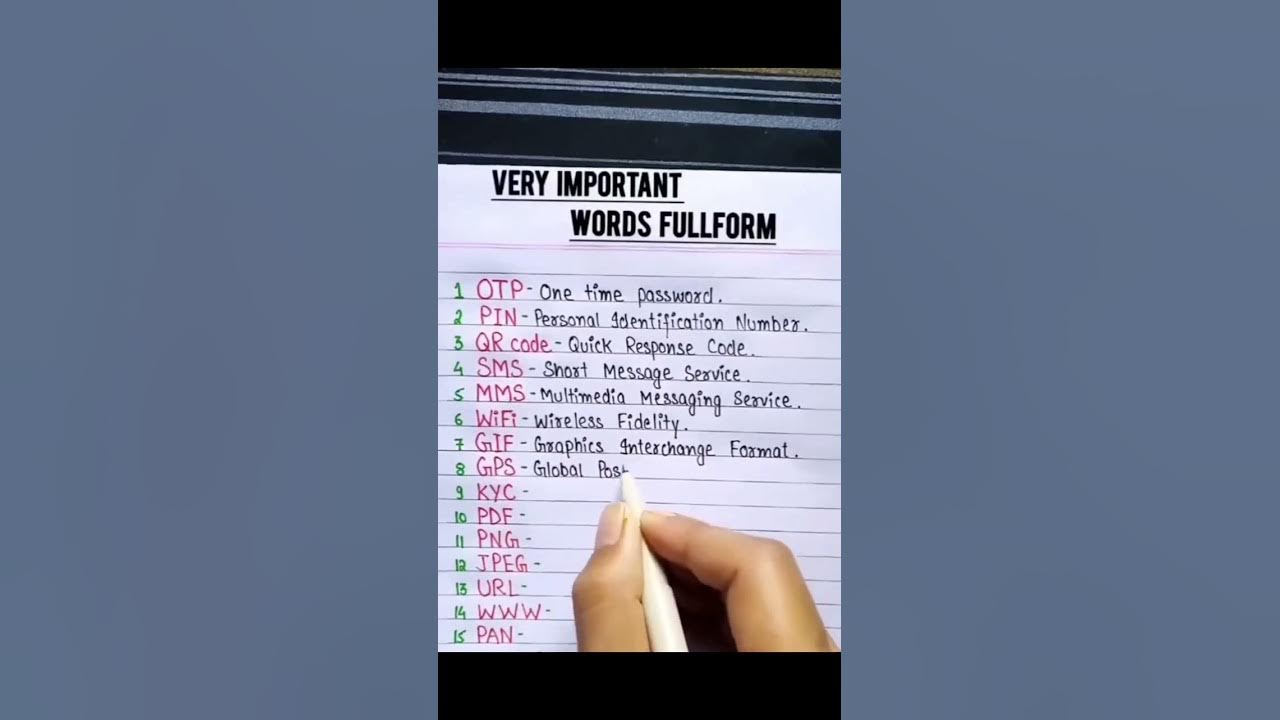 VERY IMPORTANT
WORDS FULLFORM
1 OTP - One time password.
2 PIN - Personal Identification Number.
3 QR code - Quick Response Code.
4 SMS - Short Message Service.
5 MMS - Multimedia Messaging Service.
6 WiFi - Wireless Fidelity.
7 GIF - Graphics Interchange Format.
8 GPS - Global Post
9 KYC -
10 PDF -
11 PNG -
12 JPEG -
13 URL -
14 WWW -
15 PAN -